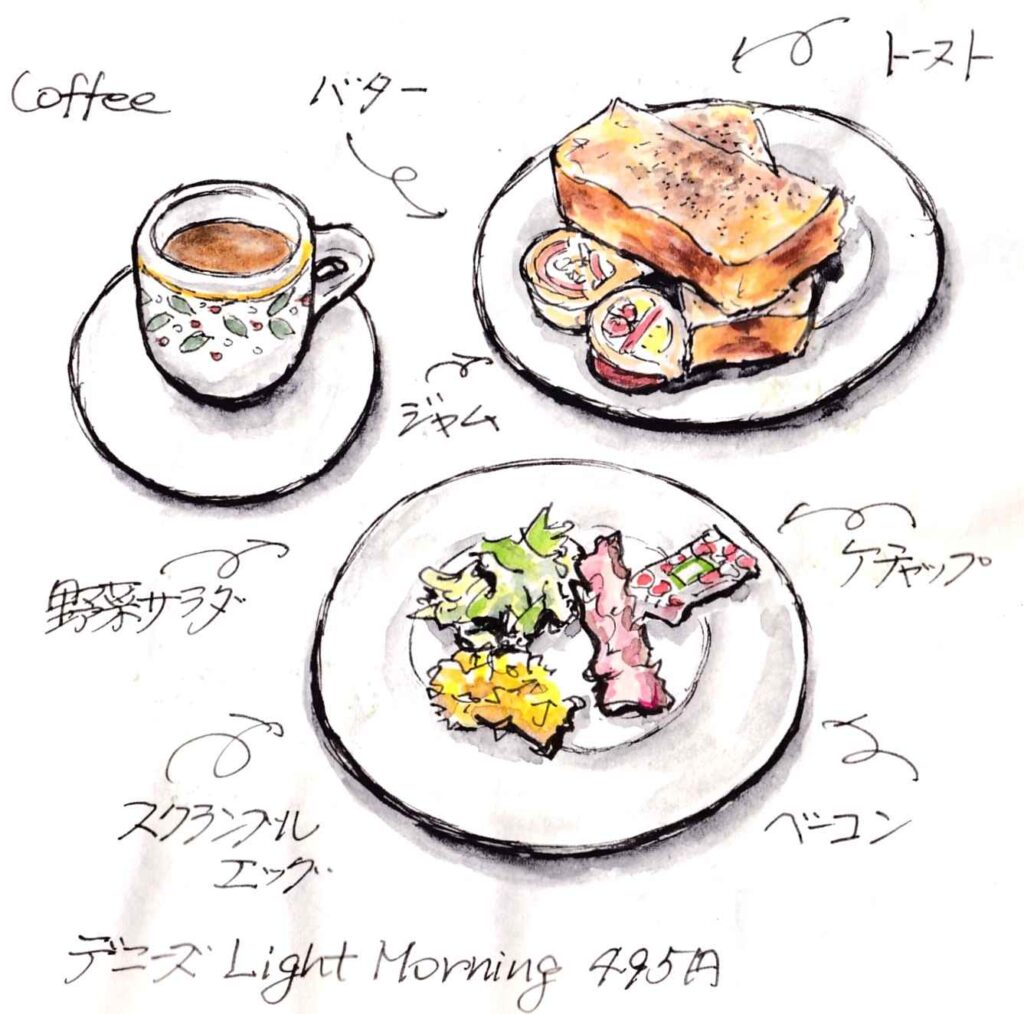 トースト
Coffee
バター
ジャム
ケチャップ
野菜サラダ
スクランブル
エッグ
ベーコン
デニーズ Light Morning 495円